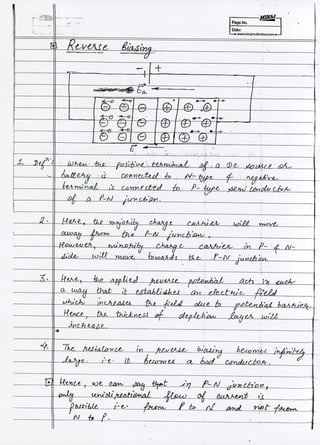 Page No.
Date:
Reverse Biasing
- +
Ea
E
1. Defn: When the positive terminal of a DC source or
battery is connected to N-type & negative
terminal is connected to P-type semiconductor
of a P-N junction.
2. Here, the majority charge carriers will move
away from the P-N junction.
However, minority charge carriers in P- & N-
side will move towards the P-N junction.
3. Here, the applied reverse potential acts in such
a way that it establishes an electric field
which increases the field due to potential barrier.
Hence, the thickness of depletion layer will
increase.
4. The resistance in reverse biasing becomes infinitely
large. i.e. it becomes a bad conductor.
Hence, we can say that in P-N junction,
only unidirectional flow of current is
possible i.e. from P to N and not from
N to P.